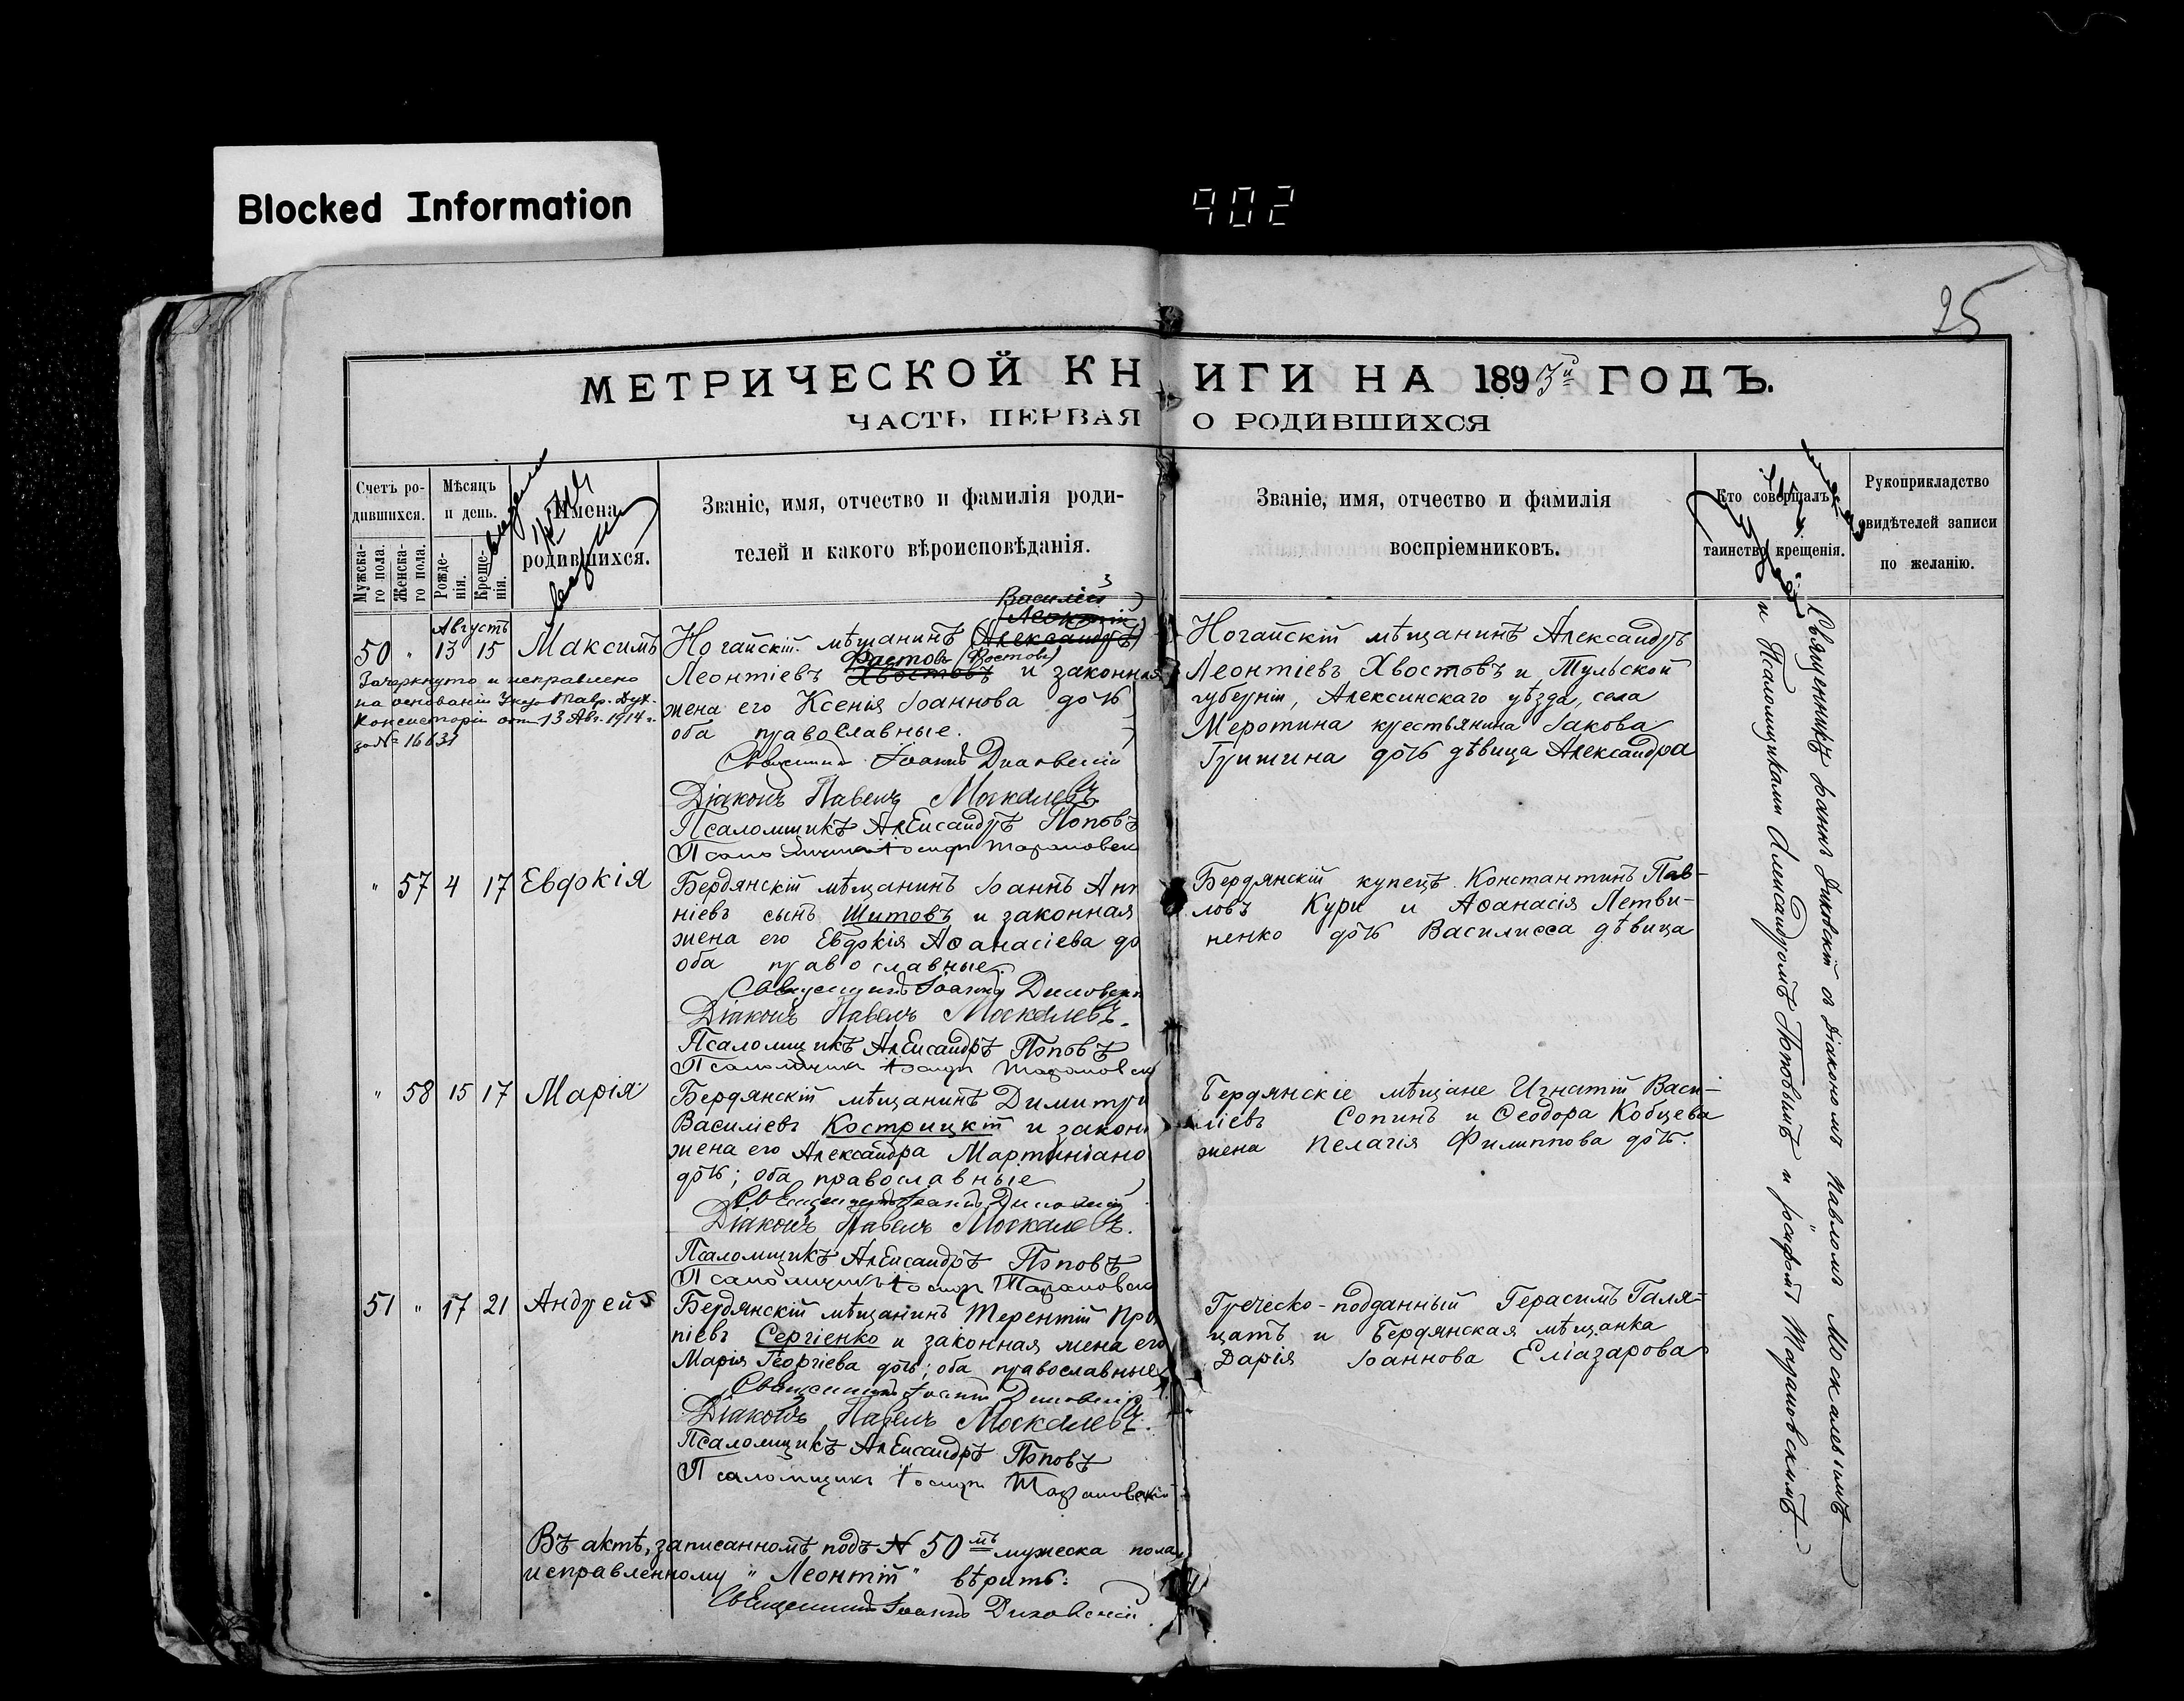 Blocked Information
902
25
МЕТРИЧЕСКОЙ КНИГИ НА 1893й ГОДЪ.
ЧАСТЬ ПЕРВАЯ О РОДИВШИХСЯ
Счетъ родившихся.
Мужскаго пола.
Женскаго пола.
Мѣсяцъ и день.
Рожденія.
Крещенія.
Имена родившихся.
Званіе, имя, отчество и фамилія роди-
телей и какого вѣроисповѣданія.
Званіе, имя, отчество и фамилія
воспріемниковъ.
Кто совершалъ
таинство крещенія.
Рукоприкладство
свидѣтелей записи
по желанію.
Августъ
50 " 13 15 Максимъ
Зачеркнуто и исправлено
на основаніи Указа Тавр. Дух.
Консисторіи отъ 13 Авг. 1914 г.
за № 16631
Василій
Леонтій
Ногайскій мѣщанинъ (Александръ)
Фастовъ (Хвостовъ)
Леонтіевъ Хвостовъ и законная
жена его Ксенія Іоаннова дочь
оба православные.
Священникъ Іоаннъ
Діаконъ Павелъ Москалевъ
Псаломщикъ Александръ Поповъ
Псаломщикъ Іосифъ Тарановскій
Ногайскій мѣщанинъ Александръ
Леонтіевъ Хвостовъ и Тульской
губерніи, Алексинскаго уѣзда, села
Меротина крестьянина Іакова
Гришина дочь дѣвица Александра
" 57 4 17 Евдокія
Бердянскій мѣщанинъ Іоаннъ
ніевъ сынъ Шитовъ и законная
жена его Евдокія Аѳанасіева до
оба православные.
Священникъ Іоаннъ
Діаконъ Павелъ Москалевъ.
Псаломщикъ Александръ Поповъ
Псаломщикъ Іосифъ Тарановскій
Бердянскій купецъ Константинъ Пав-
ловъ Кури и Аѳанасія Летви-
ненко дочь Василисса дѣвица
" 58 15 17 Марія
Бердянскій мѣщанинъ Димитрі
Василіевъ Кострицкій и закон
жена его Александра Мартиніано
дочь; оба православные
Священникъ Іоаннъ
Діаконъ Павелъ Москалевъ.
Псаломщикъ Александръ Поповъ
Псаломщикъ Іосифъ Тарановскій
Бердянскіе мѣщане Игнатій Васи-
ліевъ Сопинъ и Ѳеодора Кобцева
жена Пелагія Филиппова дочь.
51 " 17 21 Андрей
Бердянскій мѣщанинъ Терентій Про
піевъ Сергіенко и законная жена его
Марія Георгіева дочь; оба православные
Священникъ Іоаннъ
Діаконъ Павелъ Москалевъ.
Псаломщикъ Александръ Поповъ
Псаломщикъ Іосифъ Тарановскій
Греческо-подданный Герасимъ Галя-
цатъ и Бердянская мѣщанка
Дарія Іоаннова Еліазарова
Священникъ Іоаннъ с діакономъ Павломъ Москалевымъ
и Псаломщиками Александромъ Поповымъ и Іосифомъ Тарановскимъ.
Въ актѣ, записанномъ подъ № 50мъ мужеска пола
исправленному "Леонтій" вѣрить:
Священникъ Іоаннъ